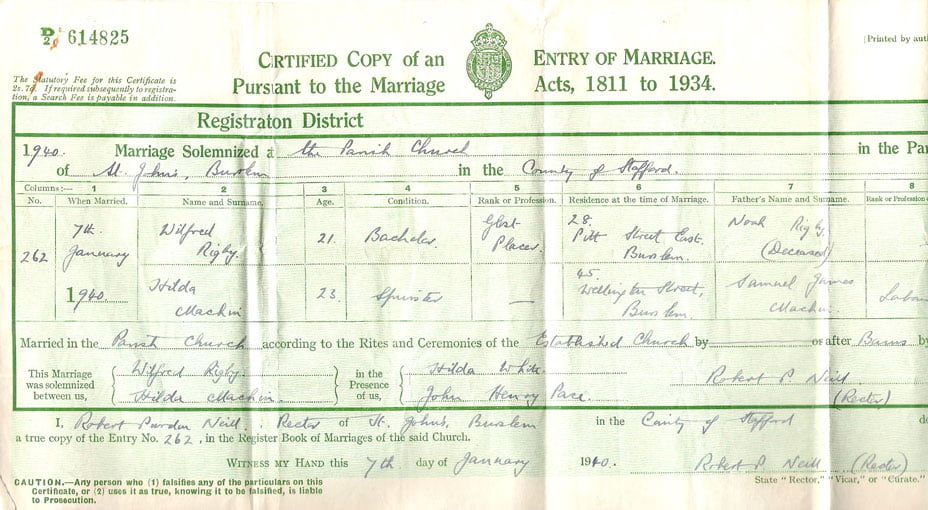 P/2 614825
[Printed by auth
CERTIFIED COPY of an ENTRY OF MARRIAGE.
Pursuant to the Marriage Acts, 1811 to 1934.
The Statutory Fee for this Certificate is
2s. 7d. If required subsequently to registra-
tion, a Search Fee is payable in addition.
Registraton District
1940. Marriage Solemnized a the Parish Church in the Par
of St. John's, Burslem in the County of Stafford.
Columns:— 1 2 3 4 5 6 7 8
No. When Married. Name and Surname. Age. Condition. Rank or Profession. Residence at the time of Marriage. Father's Name and Surname. Rank or Profession
262 7th January 1940. Wilfred Rigby. 21. Bachelor Glost Placer. 28. Pitt Street East. Burslem. Noah Rigby. (Deceased)
Hilda Machin 23. Spinster — 45. Wellington Street, Burslem. Samuel James Machin. Labou
Married in the Parish Church according to the Rites and Ceremonies of the Established Church by or after Banns by
This Marriage was solemnized between us, Wilfred Rigby. Hilda Machin. in the Presence of us, Hilda White John Henry Pace. Robert P. Neill (Rector)
I, Robert Purdon Neill, Rector of St. John's, Burslem in the County of Stafford do
a true copy of the Entry No. 262, in the Register Book of Marriages of the said Church.
WITNESS MY HAND this 7th day of January 1940. Robert P. Neill (Rector)
State "Rector," "Vicar," or "Curate."
CAUTION.—Any person who (1) falsifies any of the particulars on this
Certificate, or (2) uses it as true, knowing it to be falsified, is liable
to Prosecution.